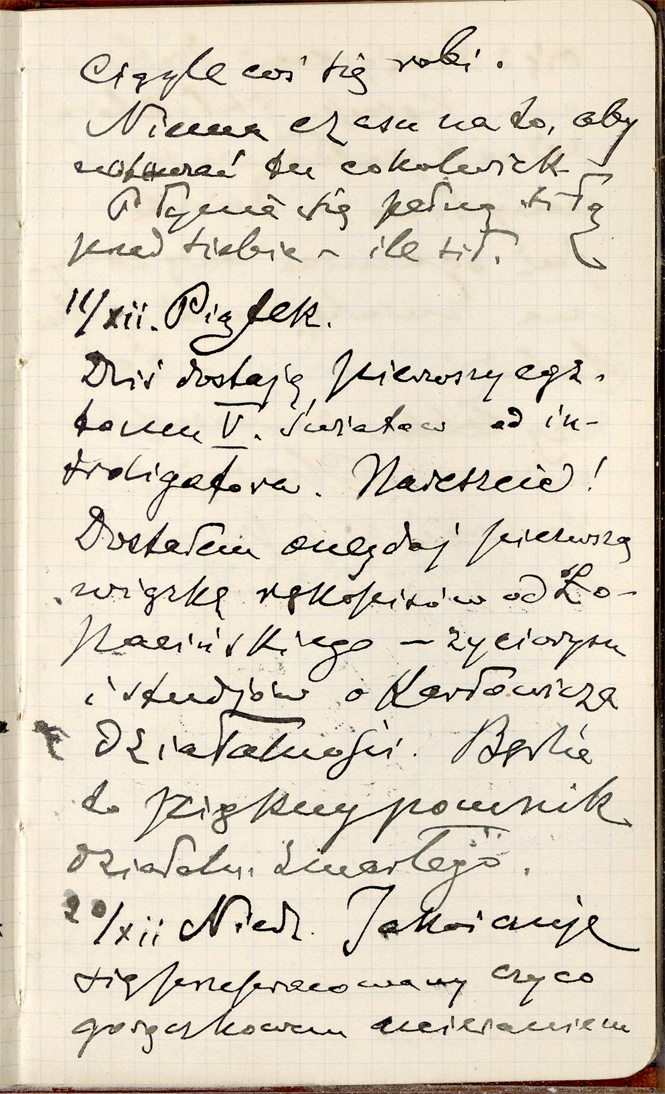 Ciągle coś się robi.
Niema czasu na to, aby
notować tu cokolwiek –
Płynie się pełną siłą
przed siebie – ile sił.
11/xii. Piątek.
Dziś dostaję pierwszy egz.
tomu V. Światów od in-
troligatora. Nareszcie!
Dostałem onegdaj pierwszą
wiązkę rękopisów od Ło-
pacińskiego – życiorysu
i studjów o Karłowicza
działalności. Będzie
to piękny pomnik
działaln. zmarłego.
20/xii Niedz. Jakoś czuję
się przepracowany czy co
gorączkowem